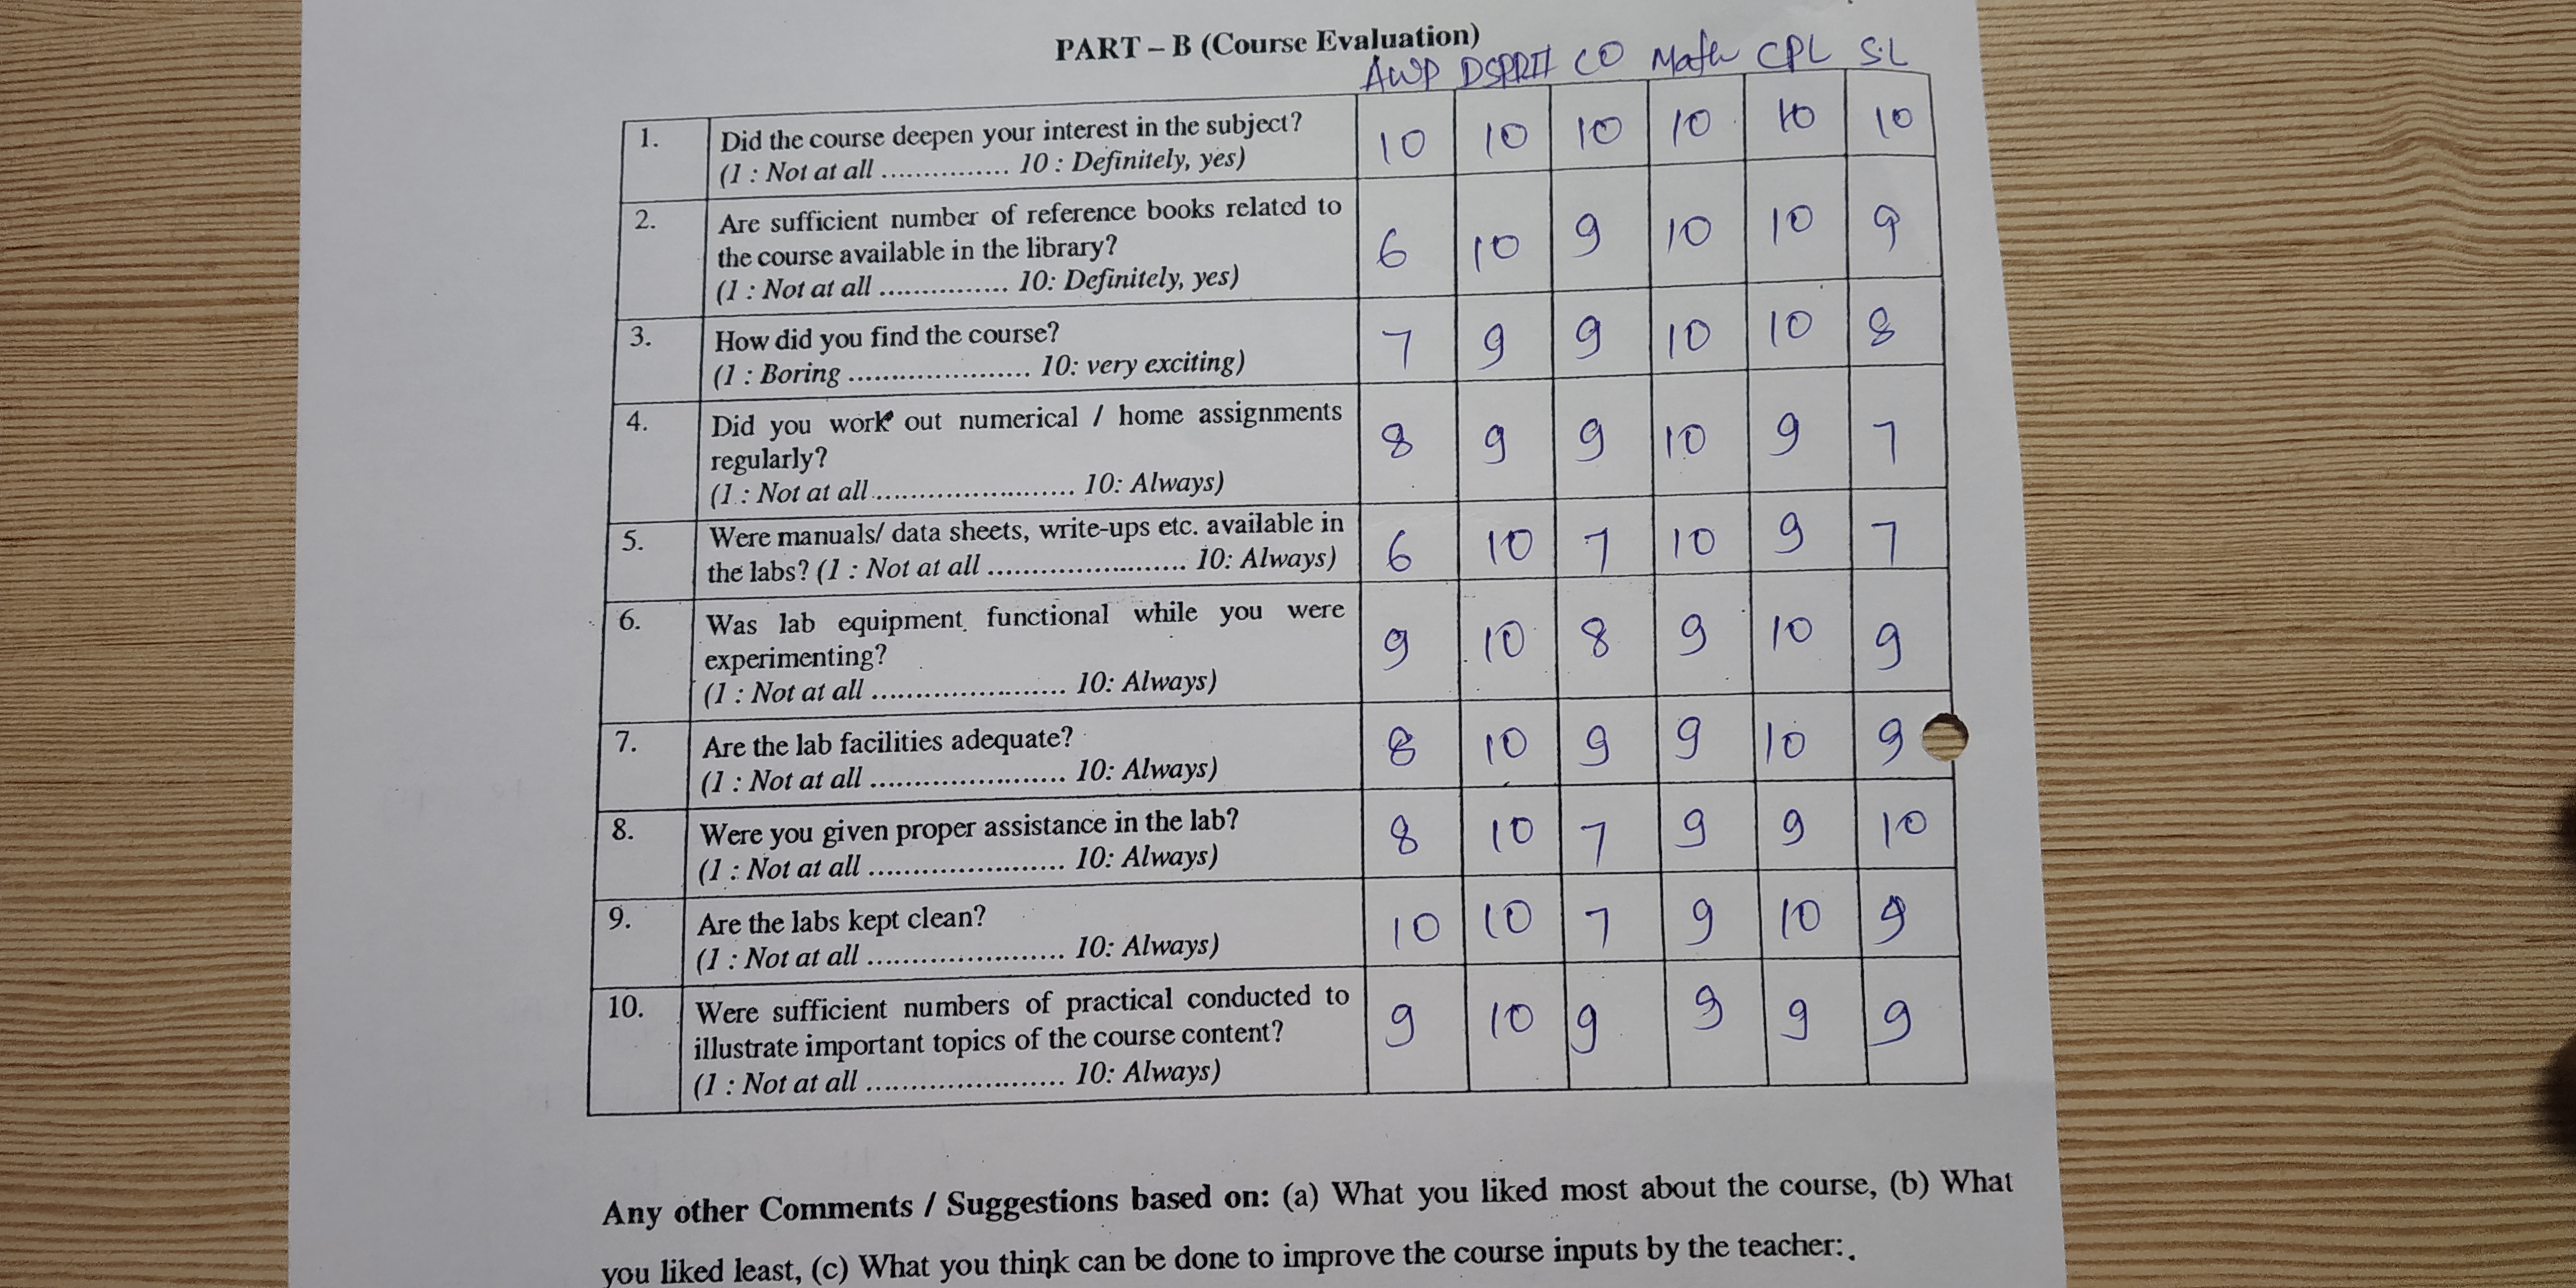 PART – B (Course Evaluation)
AWP DSPRII CO Math CPL SL
1. Did the course deepen your interest in the subject? 10 10 10 10 10 10
(1 : Not at all ............... 10 : Definitely, yes)
2. Are sufficient number of reference books related to
the course available in the library? 6 10 9 10 10 9
(1 : Not at all ............... 10: Definitely, yes)
3. How did you find the course? 7 9 9 10 10 8
(1 : Boring ..................... 10: very exciting)
4. Did you work out numerical / home assignments
regularly? 8 9 9 10 9 7
(1 : Not at all ....................... 10: Always)
5. Were manuals/ data sheets, write-ups etc. available in
the labs? (1 : Not at all ....................... 10: Always) 6 10 7 10 9 7
6. Was lab equipment functional while you were
experimenting? 9 10 8 9 10 9
(1 : Not at all ....................... 10: Always)
7. Are the lab facilities adequate? 8 10 9 9 10 9
(1 : Not at all ....................... 10: Always)
8. Were you given proper assistance in the lab? 8 10 7 9 9 10
(1 : Not at all ....................... 10: Always)
9. Are the labs kept clean? 10 10 7 9 10 9
(1 : Not at all ....................... 10: Always)
10. Were sufficient numbers of practical conducted to
illustrate important topics of the course content? 9 10 9 9 9 9
(1 : Not at all ....................... 10: Always)
Any other Comments / Suggestions based on: (a) What you liked most about the course, (b) What
you liked least, (c) What you think can be done to improve the course inputs by the teacher:.